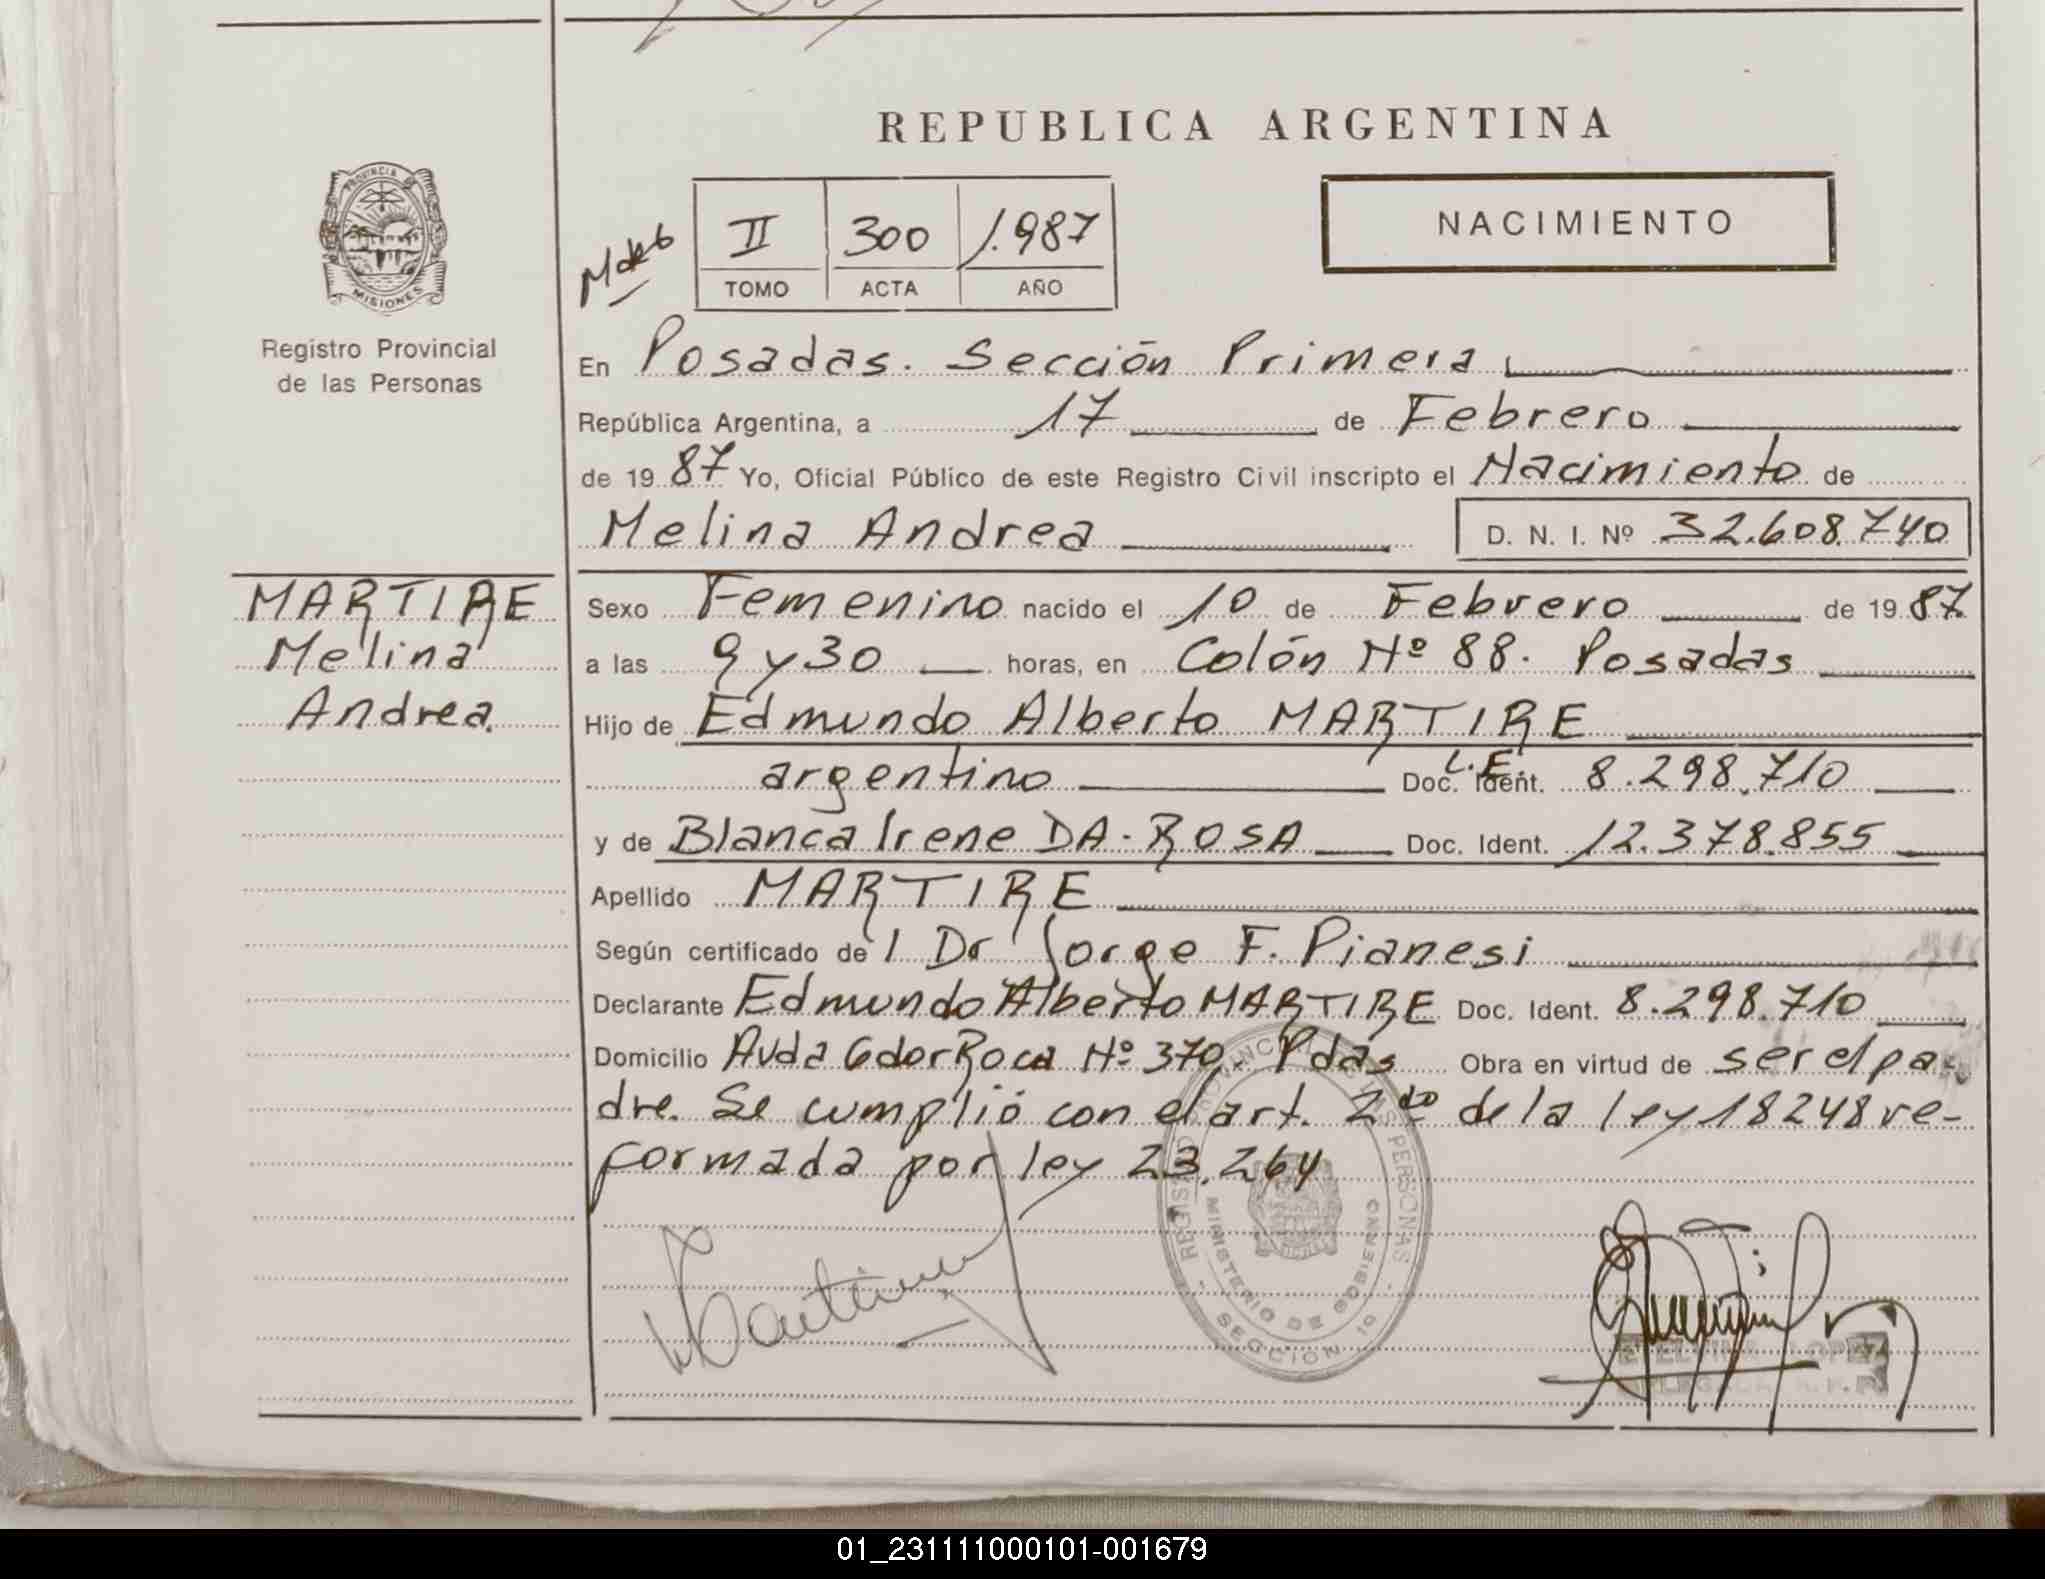 REPUBLICA ARGENTINA
PROVINCIA DE
MISIONES
Registro Provincial
de las Personas
II 300 1.987
TOMO ACTA AÑO
NACIMIENTO
En Posadas. Sección Primera
República Argentina, a 17 de Febrero
de 19 87 Yo, Oficial Público de este Registro Civil inscripto el Nacimiento de
Melina Andrea D. N. I. Nº 32.608.740
MARTIRE
Melina
Andrea.
Sexo Femenino nacido el 10 de Febrero de 19 87
a las 9 y 30 horas, en Colón Nº 88. Posadas
Hijo de Edmundo Alberto MARTIRE
argentino Doc. Ident. L.E. 8.298.710
y de Blanca Irene DA-ROSA Doc. Ident. 12.378.855
Apellido MARTIRE
Según certificado de l Dr Jorge F. Pianesi
Declarante Edmundo Alberto MARTIRE Doc. Ident. 8.298.710
Domicilio Avda Gdor Roca Nº 370. Pdas Obra en virtud de ser el pa-
dre. Se cumplió con el art. 2do de la ley 18248 re-
formada por ley 23.264
REGISTRO PROVINCIAL DE LAS PERSONAS
MINISTERIO DE GOBIERNO
SECCION 1a
LOPEZ
01_231111000101-001679